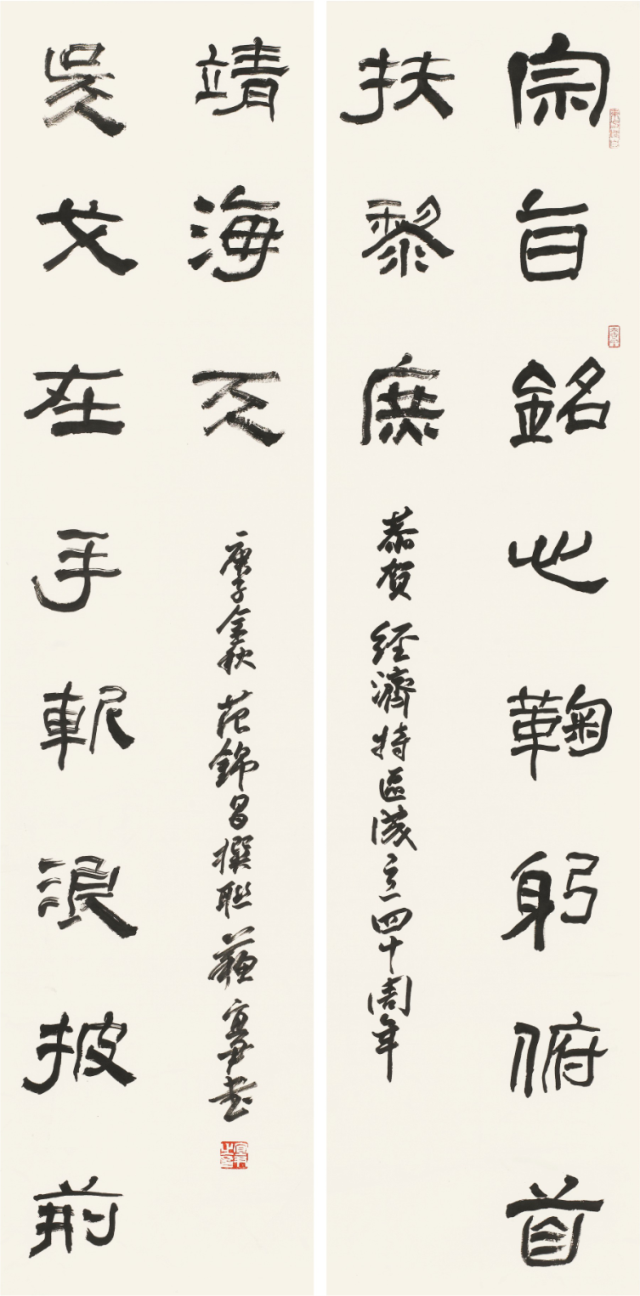 宗旨銘心鞠躬俯首
扶黎庶
恭賀經濟特區成立四十周年
吳戈在手斬浪披荆
靖海天
庚子金秋范錦昌撰聯蘇書